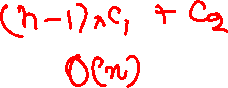 (n-1)*C₁ + C₂
O(n)